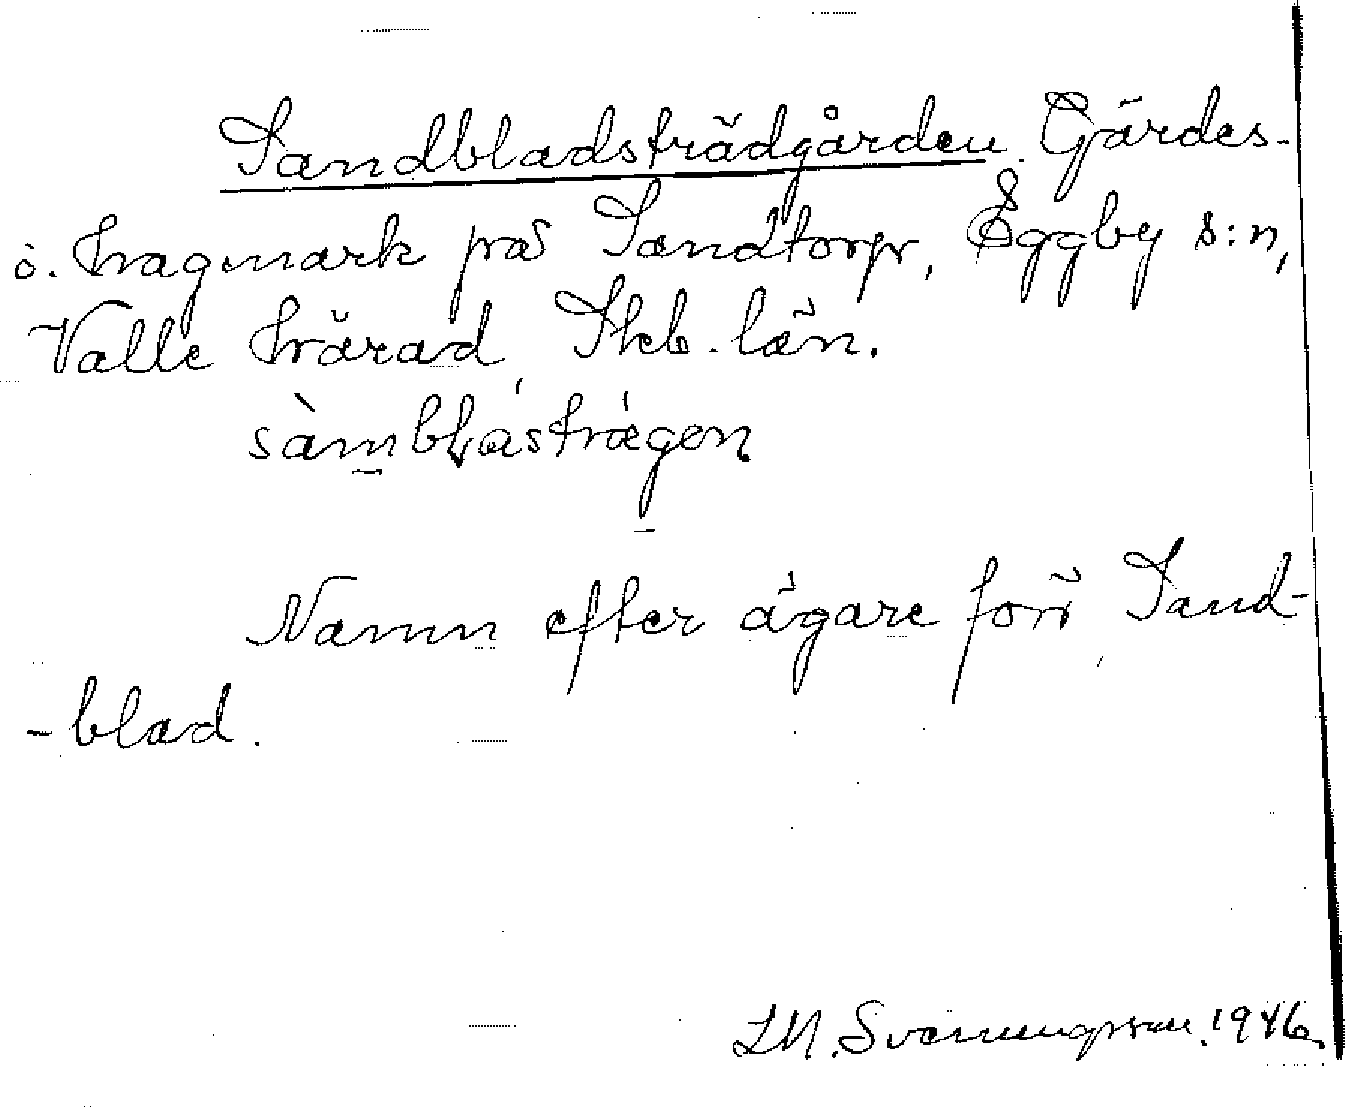 Sandbladsträdgården. Gärdes-
o. hagmark på Sandtorp, Eggby s:n,
Valle härad, Skb. län.
Namn efter ägare förr, Sand-
-blad.
L.N. Svenungsson. 1946.